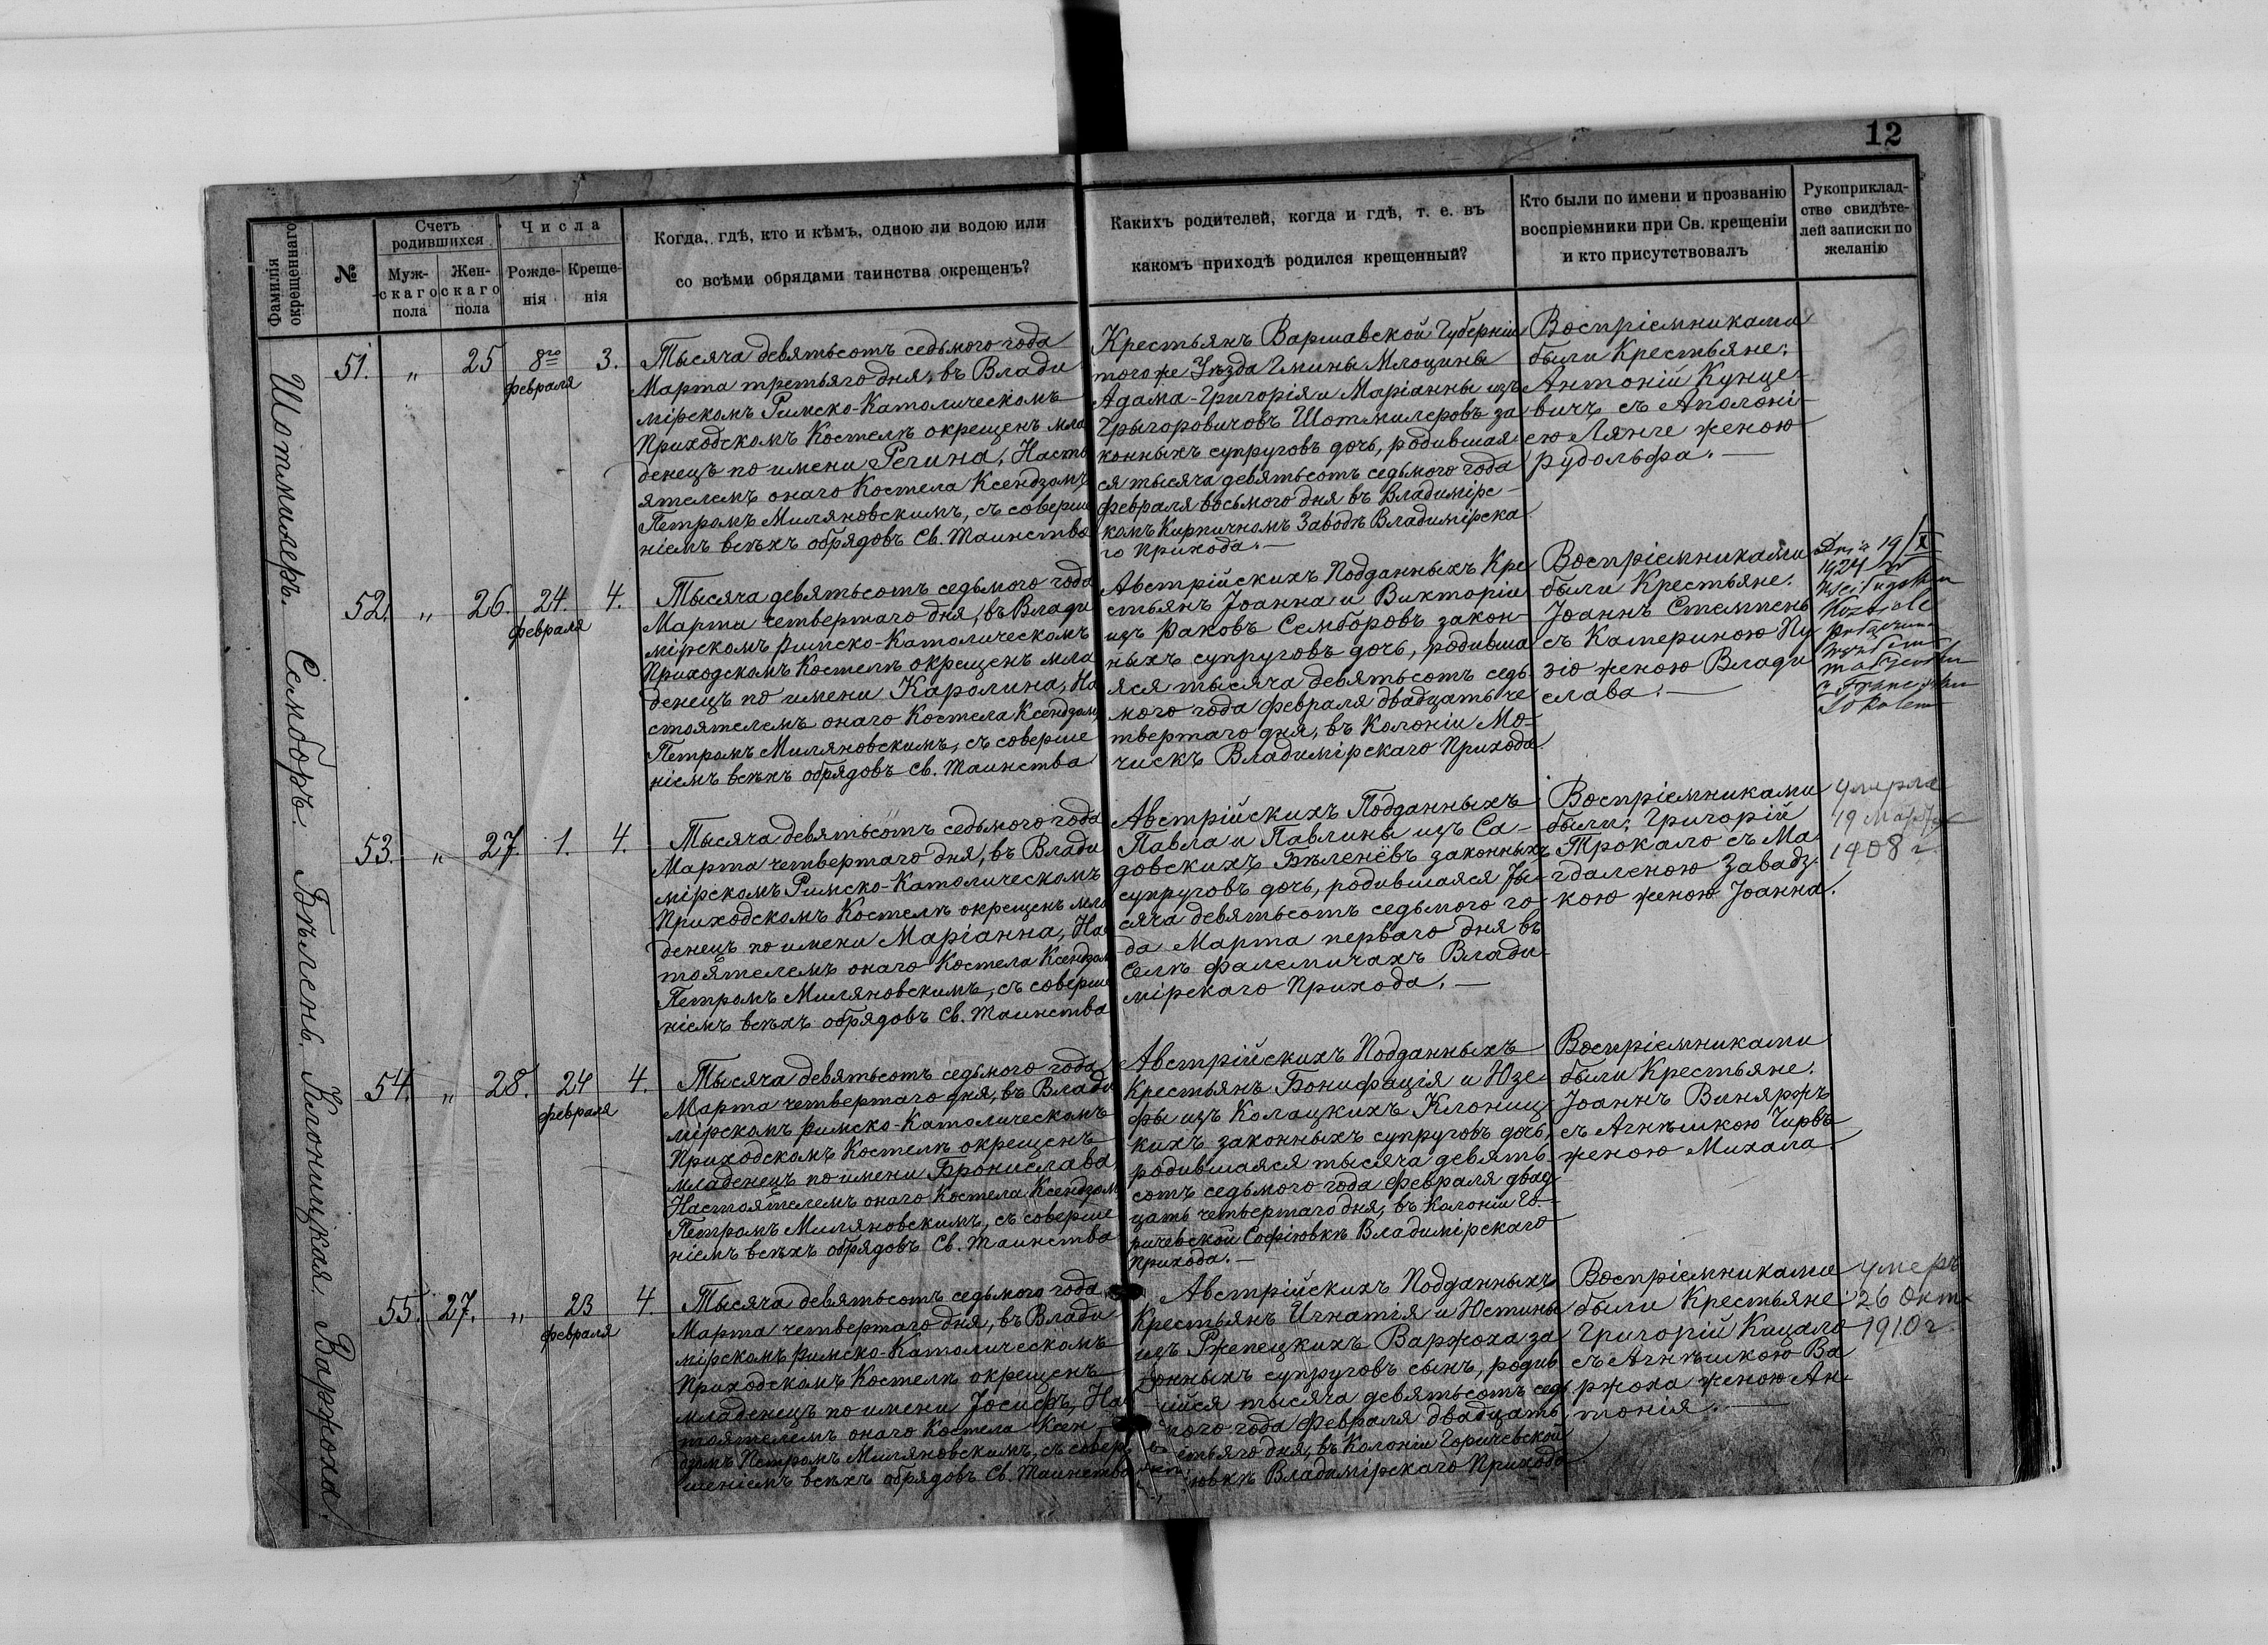 12
Фамилія окрещеннаго
№
Счетъ родившихся
Муж-
скаго
пола
Жен-
скаго
пола
Числа
Рожде-
нія
Креще-
нія
Когда, гдѣ, кто и кѣмъ, одною ли водою или
со всѣми обрядами таинства окрещенъ?
Какихъ родителей, когда и гдѣ, т. е. въ
какомъ приходѣ родился крещенный?
Кто были по имени и прозванію
воспріемники при Св. крещеніи
и кто присутствовалъ
Рукоприклад-
ство свидѣте-
лей записки по
желанію
Шотмилеръ.
51. " 25 8го февраля 3.
Тысяча девятьсотъ седьмого года
Марта третьяго дня, въ Влади
мірскомъ Римско-Католическомъ
Приходскомъ Костелѣ окрещенъ мла
денецъ по имени Регина, Насто
ятелемъ онаго Костела Ксендзомъ
Петромъ Миляновскимъ, съ соверше
ніемъ всѣхъ обрядовъ Св. Таинства
Крестьянъ Варшавской Губерніи
того же Уѣзда Гмины Млоцины
Адама-Григорія и Маріанны изъ
Грыгоровичовъ Шотмилеровъ за
конныхъ супруговъ дочь, родившая
ся тысяча девятьсотъ седьмого года
февраля восьмого дня въ Владимірс-
комъ Кирпичномъ Заводѣ Владимірска
го Прихода.—
Воспріемниками
были Крестьяне:
Антоній Кунце-
вичъ съ Аполоні-
ею Лянге женою
Рудольфа.—
Семборъ.
52. " 26. 24. февраля 4.
Тысяча девятьсотъ седьмого года
Марта четвертаго дня, въ Влади
мірскомъ Римско-Католическомъ
Приходскомъ Костелѣ окрещенъ мла
денецъ по имени Каролина, На
стоятелемъ онаго Костела Ксендзомъ
Петромъ Миляновскимъ, съ соверше
ніемъ всѣхъ обрядовъ Св. Таинства
Австрійскихъ Подданныхъ Кре
стьянъ Іоанна и Викторіи
изъ Раковъ Семборовъ закон-
ныхъ супруговъ дочь, родивша
яся тысяча девятьсотъ седь
мого года февраля двадцать че
твертаго дня, въ Колоніи Мо-
чискъ Владимірскаго Прихода.
Воспріемниками
были Крестьяне:
Іоаннъ Стемпень
съ Катериною Пу
зіо женою Влади
слава.—
Dnia 19/X
1924 r
Kościele
z Franciszkiem
Sokołem
Бѣлень.
53. " 27. 1. 4.
Тысяча девятьсотъ седьмого года
Марта четвертаго дня, въ Влади
мірскомъ Римско-Католическомъ
Приходскомъ Костелѣ окрещенъ мла
денецъ по имени Маріанна, Нас
тоятелемъ онаго Костела Ксендзом
Петромъ Миляновскимъ, съ соверше
ніемъ всѣхъ обрядовъ Св. Таинства
Австрійскихъ Подданныхъ
Павла и Павлины изъ Са-
довскихъ Бѣленёвъ законныхъ
супруговъ дочь, родившаяся ты-
сяча девятьсотъ седьмого го-
да Марта перваго дня въ
Селѣ Фалемичахъ Влади-
мірскаго Прихода.—
Воспріемниками
были: Григорій
Трокало съ Ма-
гдаленою Завадз-
кою женою Іоанна.
Умерла
19 Марта
1908 г.
Клоницкая.
54. " 28. 24 февраля 4.
Тысяча девятьсотъ седьмого года
Марта четвертаго дня, въ Влади
мірскомъ Римско-Католическомъ
Приходскомъ Костелѣ окрещенъ
младенецъ по имени Бронислава
Настоятелемъ онаго Костела Ксендзом
Петромъ Миляновскимъ, съ соверше
ніемъ всѣхъ обрядовъ Св. Таинства
Австрійскихъ Подданныхъ
Крестьянъ Бонифація и Юзе-
фы изъ Колацкихъ Клониц-
кихъ законныхъ супруговъ дочь,
родившаяся тысяча девять-
сотъ седьмого года февраля двад-
цать четвертаго дня, въ Колоніи Го-
ричевской Софіювкѣ Владимірскаго
Прихода.—
Воспріемниками
были Крестьяне:
Іоаннъ Виняржъ
съ Агнѣшкою Чирвъ
женою Михала.
Варжоха.
55. 27. " 23 февраля 4.
Тысяча девятьсотъ седьмого года
Марта четвертаго дня, въ Влади
мірскомъ Римско-Католическомъ
Приходскомъ Костелѣ окрещенъ
младенецъ по имени Іосифъ, Нас
тоятелемъ онаго Костела Ксен-
дзомъ Петромъ Миляновскимъ, съ совер
шеніемъ всѣхъ обрядовъ Св. Таинства
Австрійскихъ Подданныхъ
Крестьянъ Игнатія и Юстины
изъ Ржепецкихъ Варжоха за
конныхъ супруговъ сынъ, родив
шійся тысяча девятьсотъ седь
мого года февраля двадцать
третьяго дня, въ Колоніи Горичевской
ювкѣ Владимірскаго Прихода
Воспріемниками
были Крестьяне:
Григорій Кицало
съ Агнѣшкою Ва
ржоха женою Ан-
тонія.—
Умеръ
26 Окт.
1910 г.